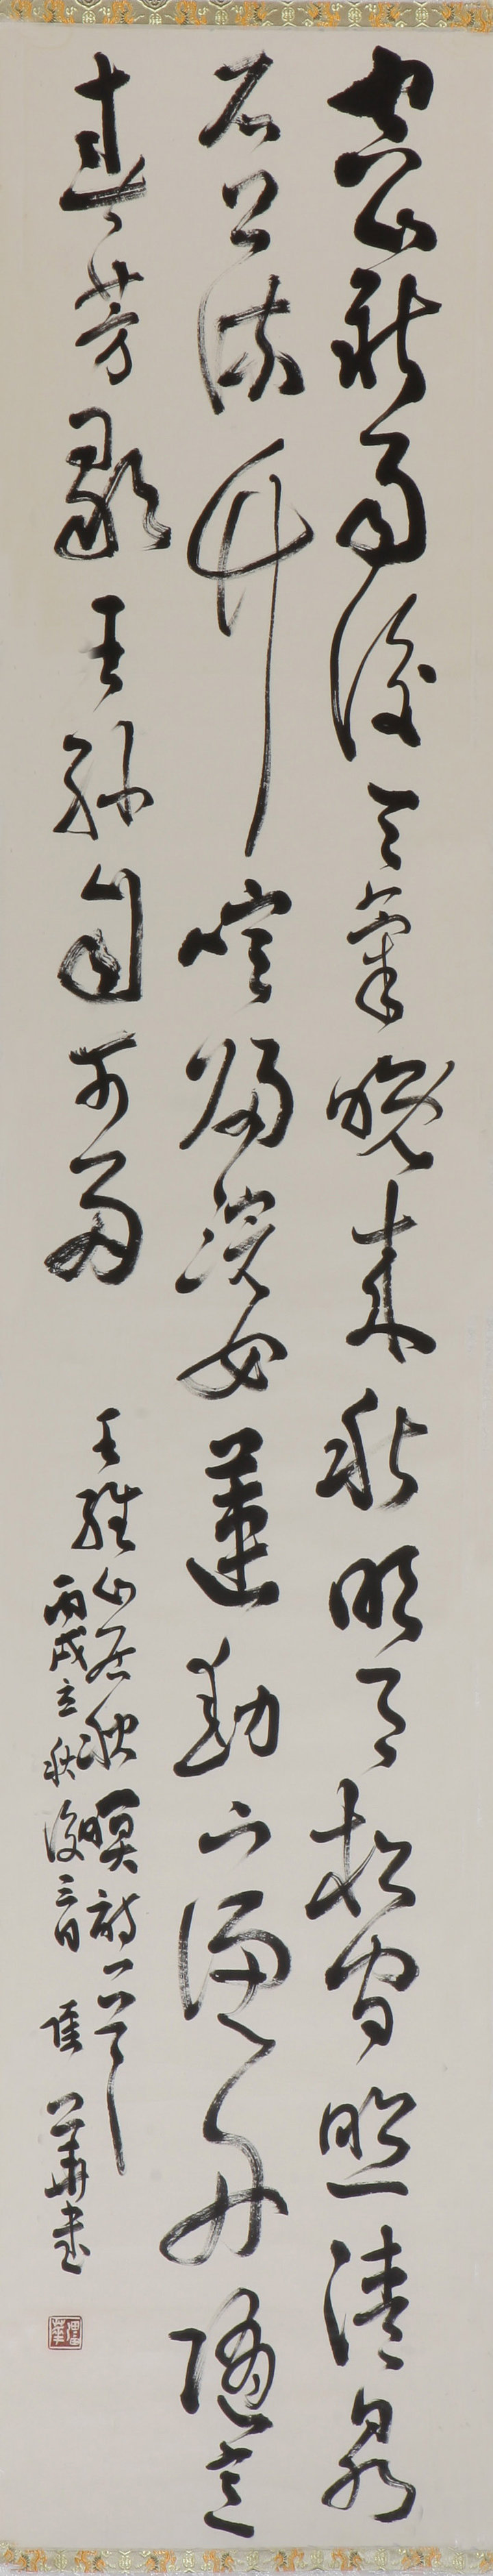 空山新雨後天氣晚來秋明月松間照清泉
石上流竹喧歸浣女蓮動下漁舟隨意
春芳歇王孫自可留 王維山居秋暝詩一首
丙戌立秋後三日 華書